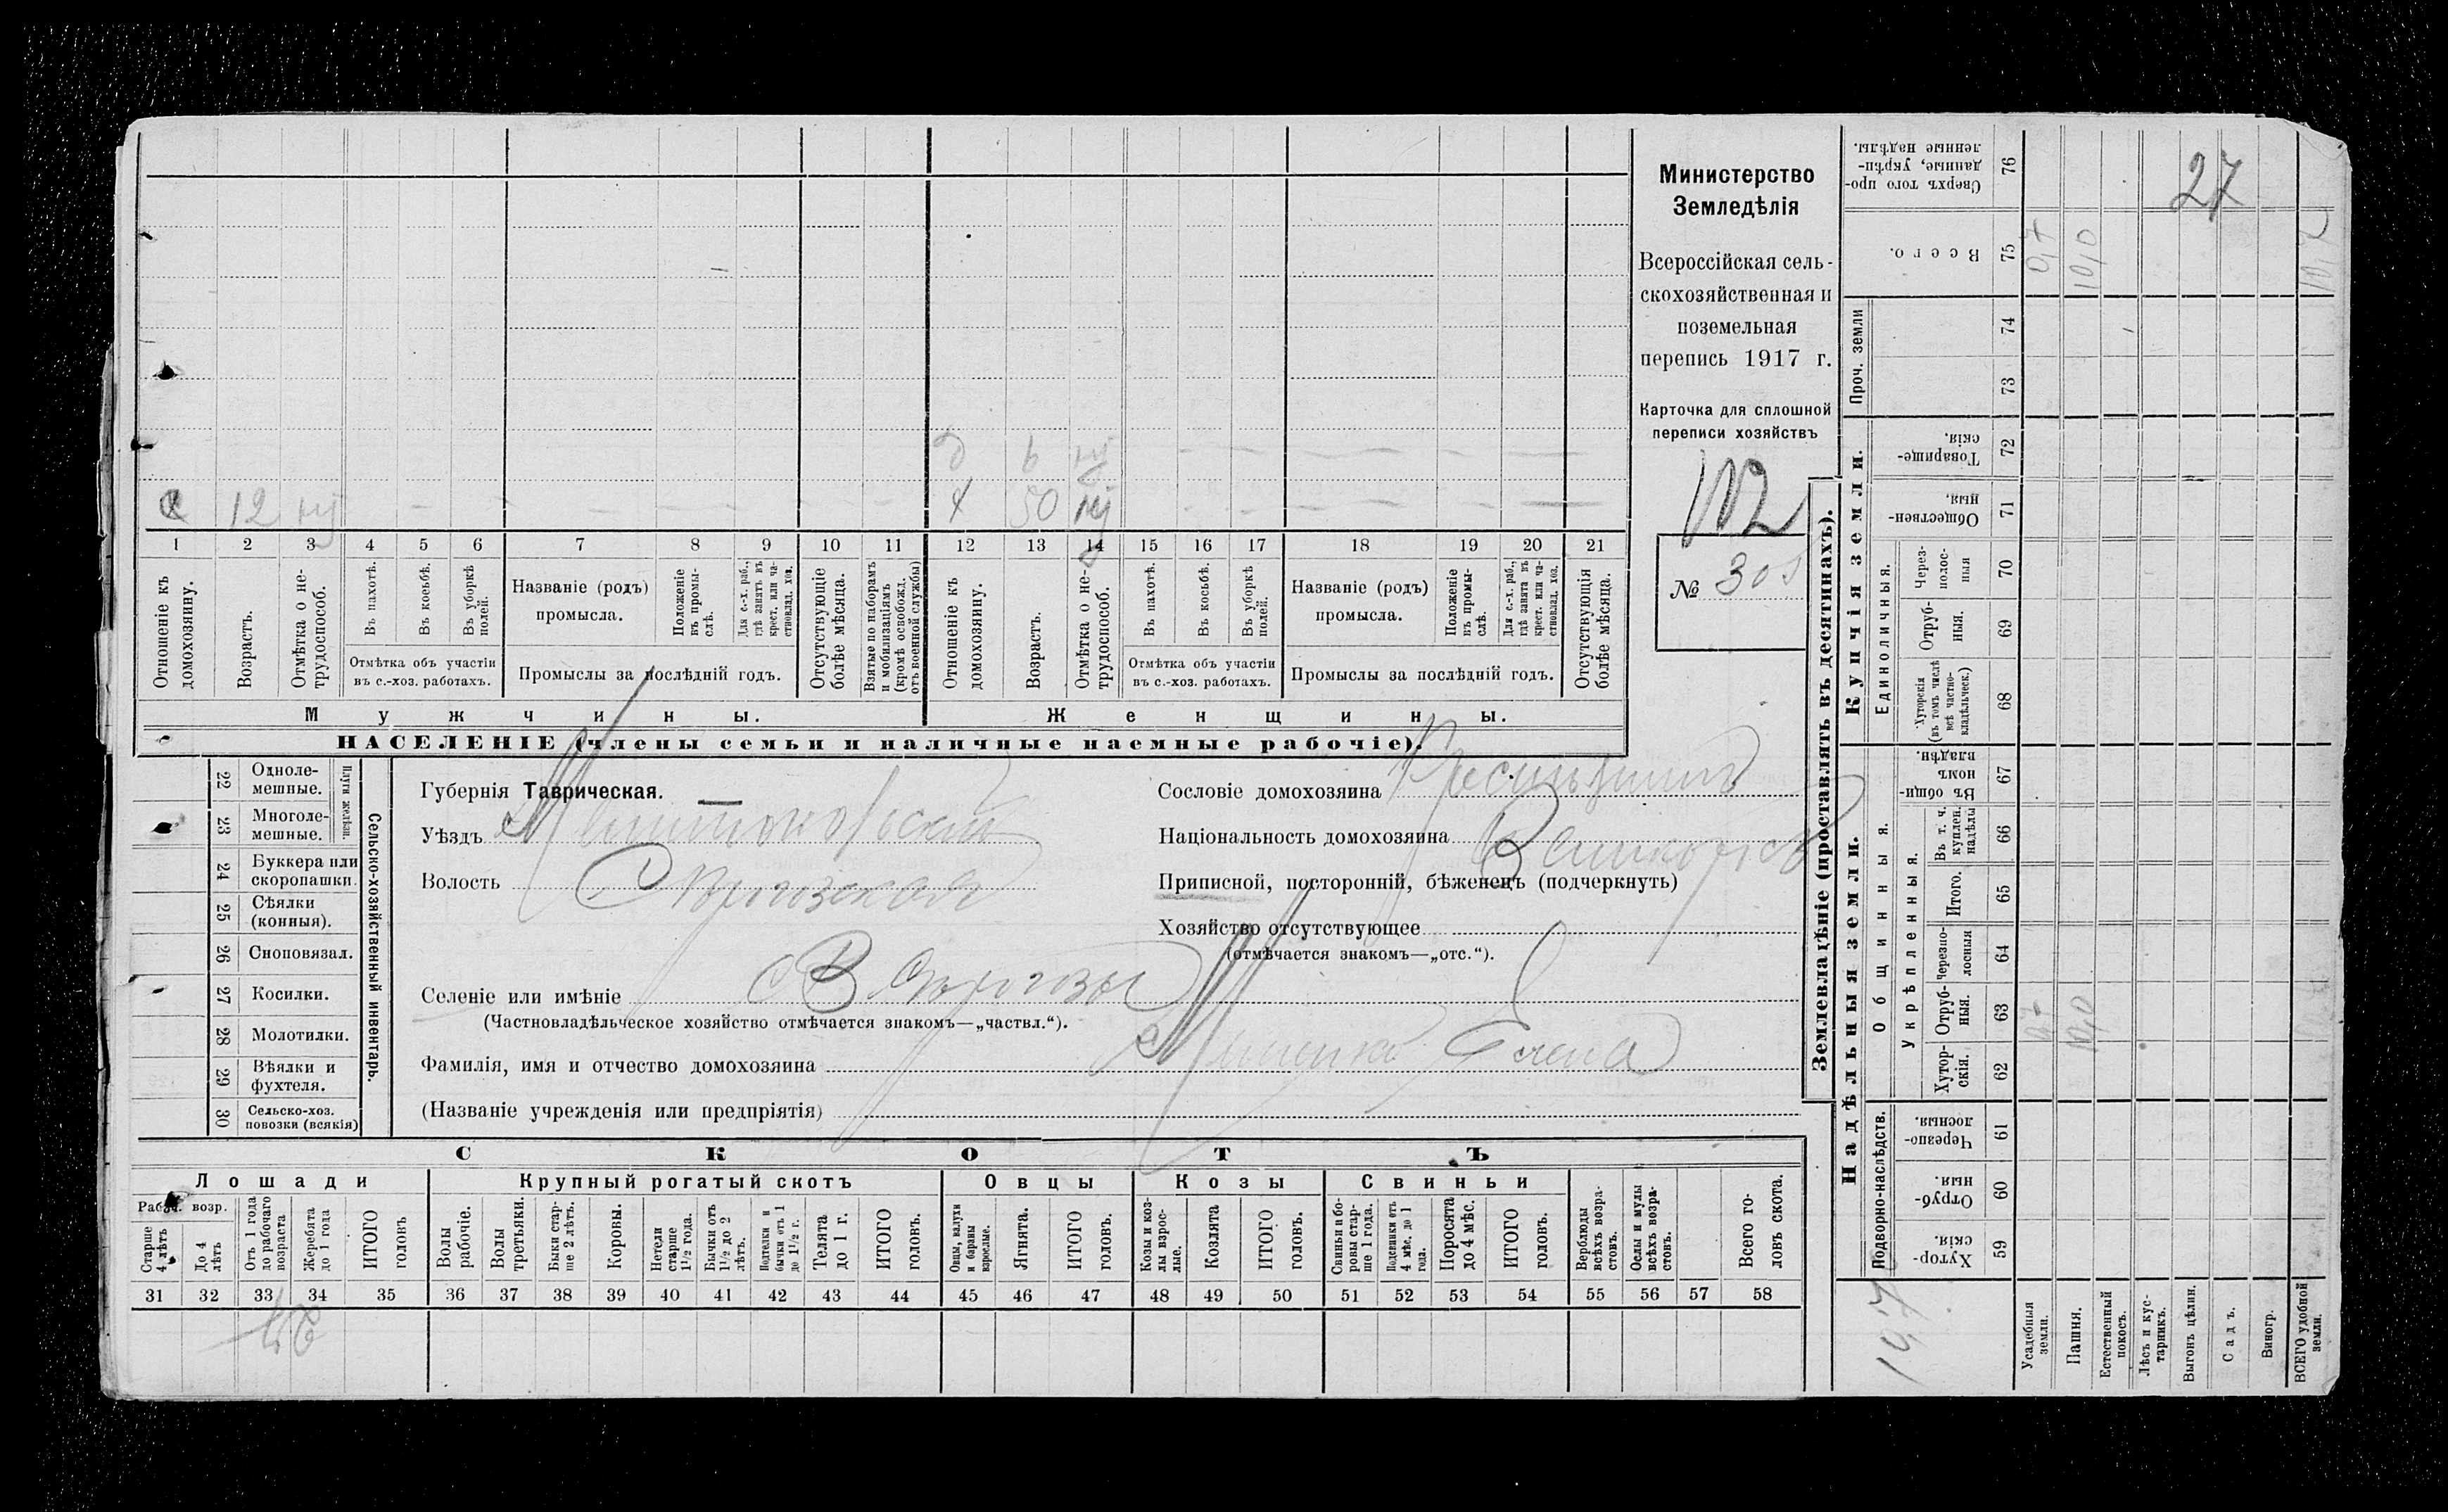 Министерство
Земледѣлія
Всероссійская сель-
скохозяйственная и
поземельная
перепись 1917 г.
Карточка для сплошной
переписи хозяйствъ
102
№ 305
д 6 нѣ
с 12 нѣ х 50 нѣ
1 2 3 4 5 6 7 8 9 10 11 12 13 14 15 16 17 18 19 20 21
Отношеніе къ домохозяину.
Возрастъ.
Отмѣтка о нетрудоспособ.
Въ пахотѣ.
Въ косьбѣ.
Въ уборкѣ полей.
Отмѣтка объ участіи
въ с.-хоз. работахъ.
Названіе (родъ)
промысла.
Положеніе въ промыслѣ.
Для с.-х. раб., гдѣ занятъ въ крест. или частновлад. хоз.
Промыслы за послѣдній годъ.
Отсутствующіе болѣе мѣсяца.
Взятые по наборамъ и мобилизаціямъ (кромѣ освобожд. отъ военной службы)
Отношеніе къ домохозяину.
Возрастъ.
Отмѣтка о нетрудоспособ.
Въ пахотѣ.
Въ косьбѣ.
Въ уборкѣ полей.
Отмѣтка объ участіи
въ с.-хоз. работахъ.
Названіе (родъ)
промысла.
Положеніе въ промыслѣ.
Для с.-х. раб., гдѣ занята въ крест. или частновлад. хоз.
Промыслы за послѣдній годъ.
Отсутствующія болѣе мѣсяца.
Мужчины.
Женщины.
НАСЕЛЕНІЕ (члены семьи и наличные наемные рабочіе).
Сельско-хозяйственный инвентарь.
Плуги желѣзн.
22 Одноле-
мешные.
23 Многоле-
мешные.
24 Буккера или
скоропашки.
25 Сѣялки
(конныя).
26 Сноповязал.
27 Косилки.
28 Молотилки.
29 Вѣялки и
фухтеля.
30 Сельско-хоз.
повозки (всякія)
Губернія Таврическая.
Уѣздъ Мелитопольский
Волость
Селеніе или имѣніе
(Частновладѣльческое хозяйство отмѣчается знакомъ—„частвл.“).
Фамилія, имя и отчество домохозяина Елена
(Названіе учрежденія или предпріятія)
Сословіе домохозяина
Національность домохозяина
Приписной, посторонній, бѣженецъ (подчеркнуть)
Хозяйство отсутствующее
(отмѣчается знакомъ—„отс.“).
СКОТЪ
Лошади
Крупный рогатый скотъ
Овцы
Козы
Свиньи
Рабоч. возр.
Старше 4 лѣтъ
До 4 лѣтъ
Отъ 1 года до рабочаго возраста
Жеребята до 1 года
ИТОГО головъ
Волы рабочіе.
Волы третьяки.
Быки старше 2 лѣтъ.
Коровы.
Нетели старше 1½ года.
Бычки отъ 1½ до 2 лѣтъ.
Подтелки и бычки отъ 1 до 1½ г.
Телята до 1 г.
ИТОГО головъ.
Овцы, валухи и бараны взрослые.
Ягнята.
ИТОГО головъ.
Козы и козлы взрослые.
Козлята
ИТОГО головъ.
Свиньи и боровы старше 1 года.
Подсвинки отъ 4 мѣс. до 1 года.
Поросята до 4 мѣс.
ИТОГО головъ.
Верблюды всѣхъ возрастовъ.
Ослы и мулы всѣхъ возрастовъ.
Всего головъ скота.
31 32 33 34 35 36 37 38 39 40 41 42 43 44 45 46 47 48 49 50 51 52 53 54 55 56 57 58
Землевладѣніе (проставлять въ десятинахъ).
Надѣльныя земли.
Купчія земли.
Проч. земли
Подворно-наслѣдств.
Общинныя.
Укрѣпленныя.
Единоличныя.
Хуторскія. 59
Отрубныя. 60
Черезполосныя 61
Хуторскія. 62
Отрубныя. 63
Черезполосныя 64
Итого. 65
Въ т. ч. куплен. надѣлы 66
Въ общинномъ владѣн. 67
Хуторскія (въ томъ числѣ всѣ частновладѣльческ.) 68
Отрубныя. 69
Черезполосныя 70
Общественныя. 71
Товарищескія. 72
73
74
Всего. 75
Сверхъ того проданные, укрѣпленные надѣлы. 76
Усадебныя земли.
Пашня.
Естественный покосъ.
Лѣсъ и кустарникъ.
Выгонъ цѣлин.
Садъ.
Виногр.
ВСЕГО удобной земли.
0,7
10,0
10,7
10,0
27